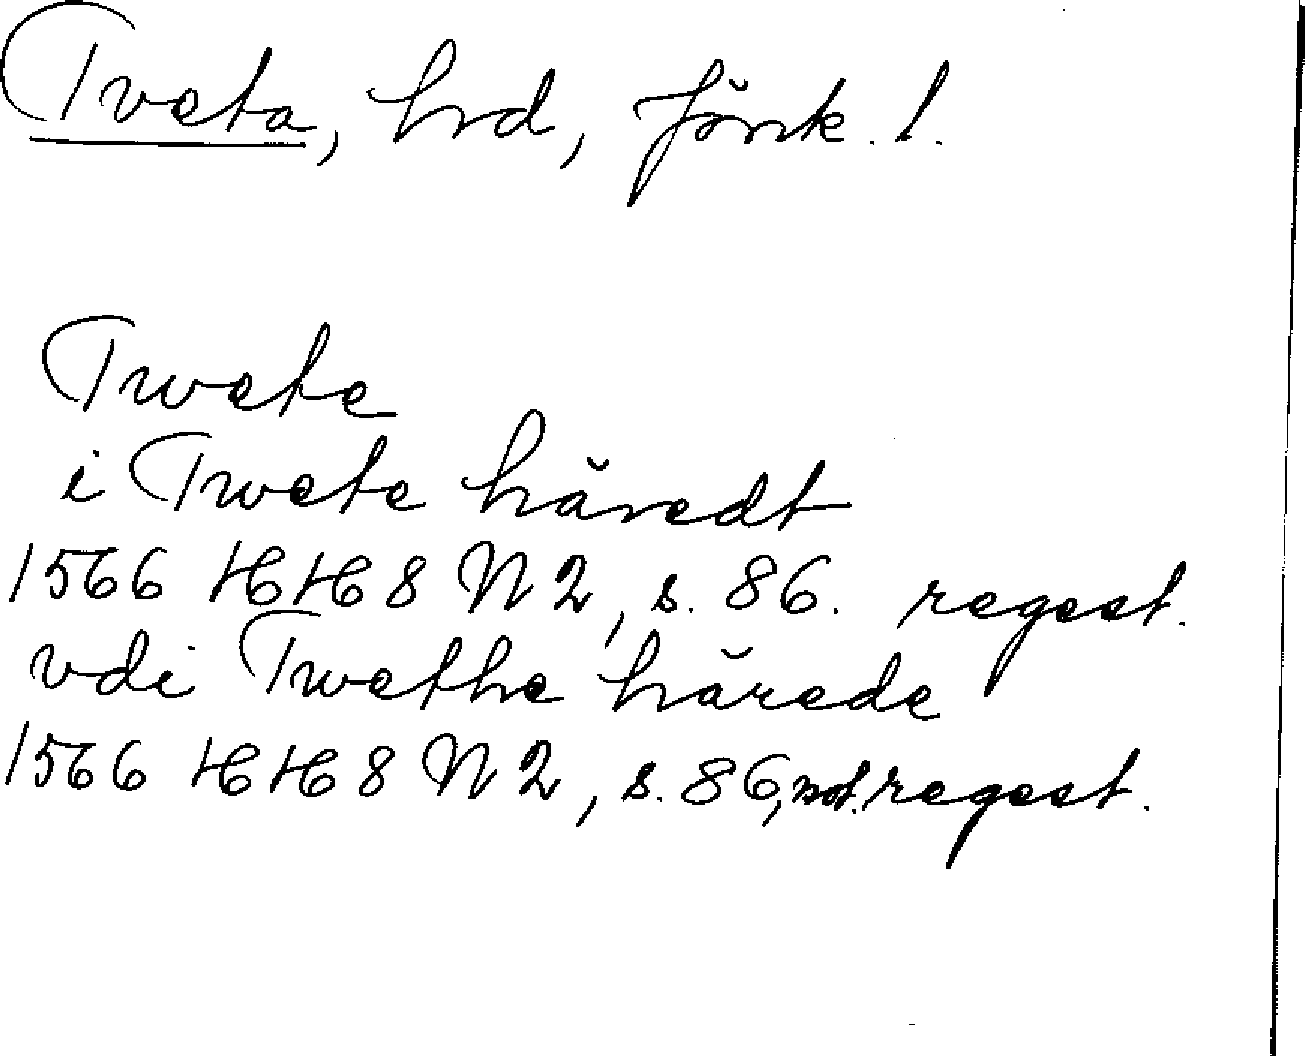 Tveta, hd, Jönk. l.
Twete
i Twete häredt
1566 HH 8 N 2, s. 86. regest.
vdi Twethe härede
1566 HH 8 N 2, s. 86, not. regest.